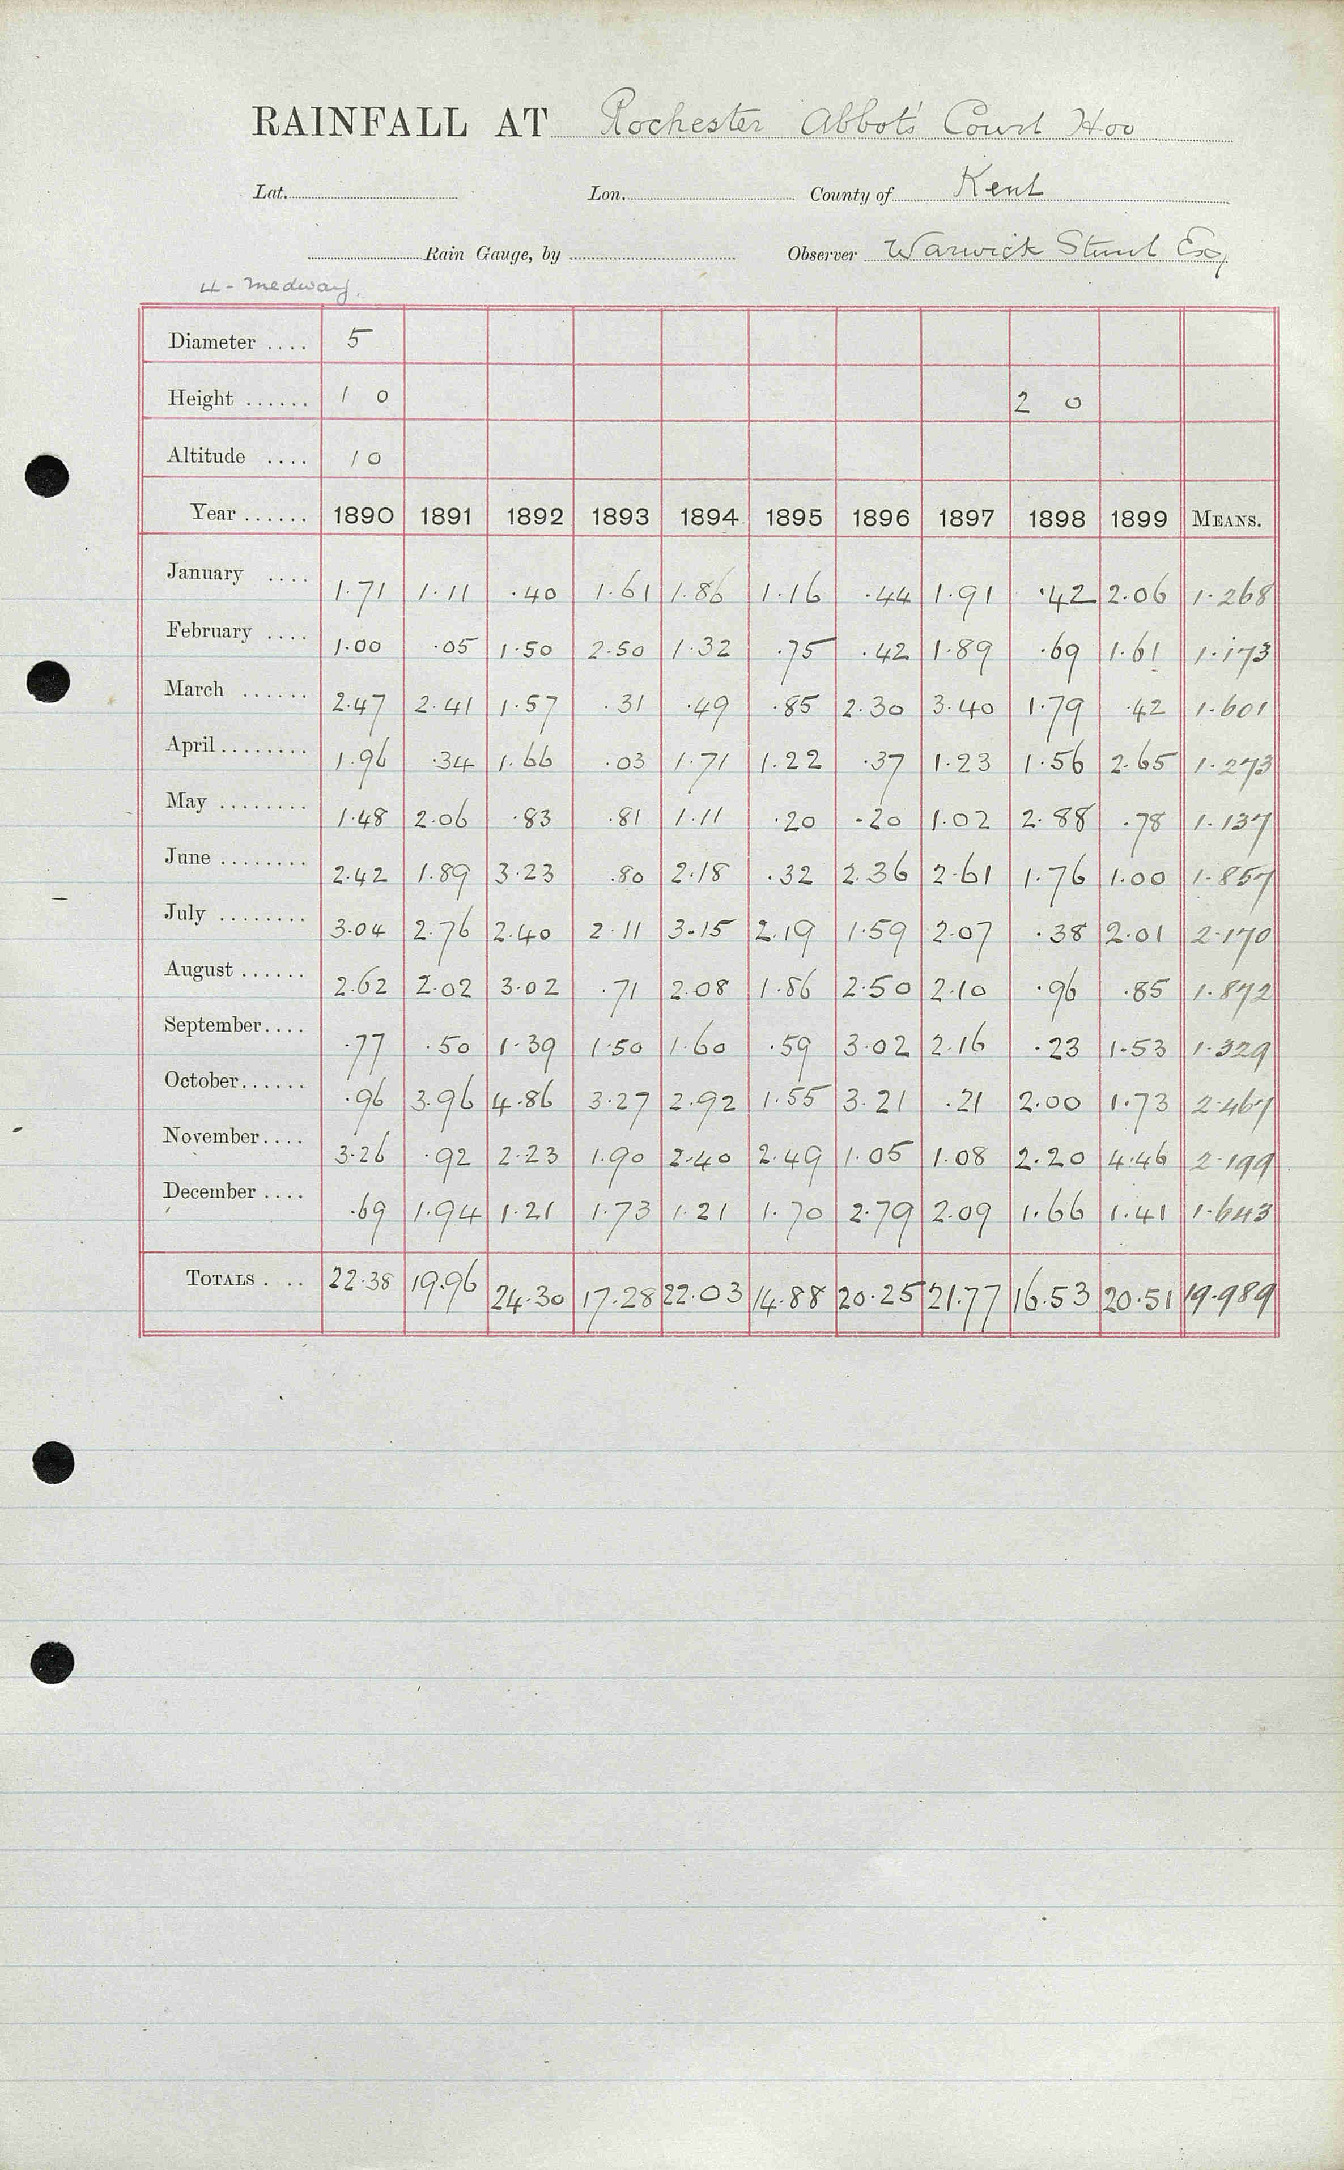 RAINFALL AT Rochester Abbot's Court Hoo
Lat. Lon. County of Kent
Rain Gauge, by Observer Warwick Stunt Esq
4 - Medway
Diameter .... 5
Height ...... 1 0 2 0
Altitude .... 10
Year ...... 1890 1891 1892 1893 1894 1895 1896 1897 1898 1899 MEANS.
January .... 1.71 1.11 .40 1.61 1.86 1.16 .44 1.91 .42 2.06 1.268
February .... 1.00 .05 1.50 2.50 1.32 .75 .42 1.89 .69 1.61 1.173
March ...... 2.47 2.41 1.57 .31 .49 .85 2.30 3.40 1.79 .42 1.601
April ........ 1.96 .34 1.66 .03 1.71 1.22 .37 1.23 1.56 2.65 1.273
May ........ 1.48 2.06 .83 .81 1.11 .20 .20 1.02 2.88 .78 1.137
June ........ 2.42 1.89 3.23 .80 2.18 .32 2.36 2.61 1.76 1.00 1.857
July ........ 3.04 2.76 2.40 2.11 3.15 2.19 1.59 2.07 .38 2.01 2.170
August ...... 2.62 2.02 3.02 .71 2.08 1.86 2.50 2.10 .96 .85 1.872
September .... .77 .50 1.39 1.50 1.60 .59 3.02 2.16 .23 1.53 1.329
October ...... .96 3.96 4.86 3.27 2.92 1.55 3.21 .21 2.00 1.73 2.467
November .... 3.26 .92 2.23 1.90 2.40 2.49 1.05 1.08 2.20 4.46 2.199
December .... .69 1.94 1.21 1.73 1.21 1.70 2.79 2.09 1.66 1.41 1.643
TOTALS . .. 22.38 19.96 24.30 17.28 22.03 14.88 20.25 21.77 16.53 20.51 19.989